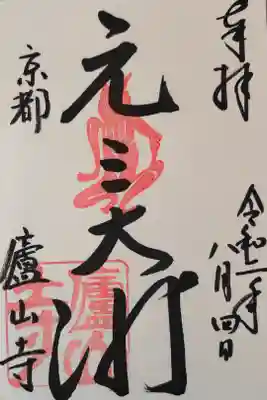 奉拝
令和二年
八月四日
元三大師
京都
廬山寺